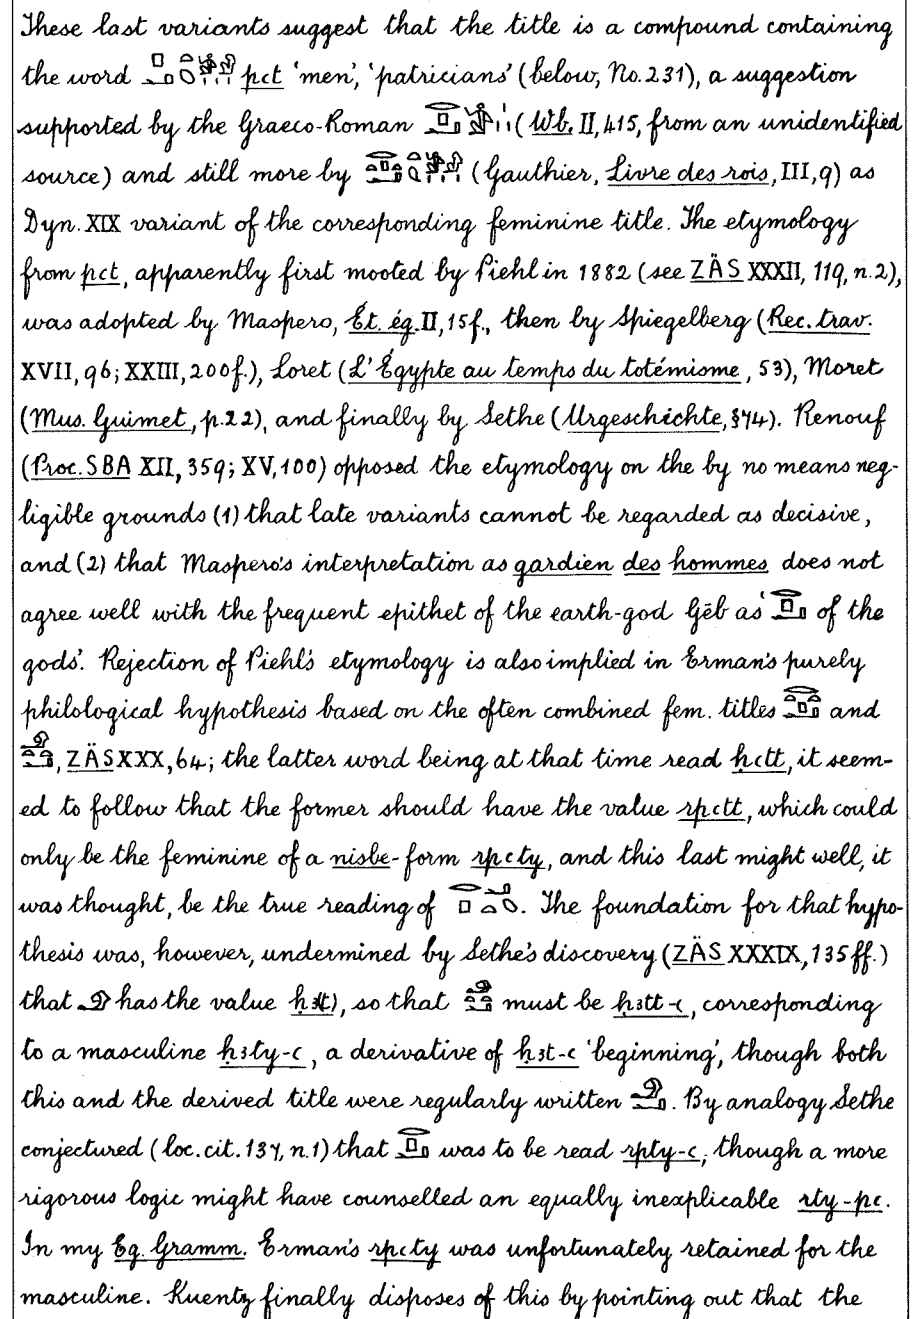 These last variants suggest that the title is a compound containing
the word pꜥt 'men', 'patricians' (below, No. 231), a suggestion
supported by the Graeco-Roman (Wb. II, 415, from an unidentified
source) and still more by (Gauthier, Livre des rois, III, 9) as
Dyn. XIX variant of the corresponding feminine title. The etymology
from pꜥt, apparently first mooted by Piehl in 1882 (see ZÄS XXXII, 119, n. 2),
was adopted by Maspero, Ét. ég. II, 15f., then by Spiegelberg (Rec. trav.
XVII, 96; XXIII, 200f.), Loret (L'Égypte au temps du totémisme, 53), Moret
(Mus. Guimet, p. 22), and finally by Sethe (Urgeschichte, §74). Renouf
(Proc. SBA XII, 359; XV, 100) opposed the etymology on the by no means neg-
ligible grounds (1) that late variants cannot be regarded as decisive,
and (2) that Maspero's interpretation as gardien des hommes does not
agree well with the frequent epithet of the earth-god Gēb as ' of the
gods'. Rejection of Piehl's etymology is also implied in Erman's purely
philological hypothesis based on the often combined fem. titles and
, ZÄS XXX, 64; the latter word being at that time read ḥꜥtt, it seem-
ed to follow that the former should have the value rpꜥtt, which could
only be the feminine of a nisbe-form rpꜥty, and this last might well, it
was thought, be the true reading of . The foundation for that hypo-
thesis was, however, undermined by Sethe's discovery (ZÄS XXXIX, 135ff.)
that has the value ḥꜣt), so that must be ḥꜣtt-ꜥ, corresponding
to a masculine ḥꜣty-ꜥ, a derivative of ḥꜣt-ꜥ 'beginning', though both
this and the derived title were regularly written . By analogy Sethe
conjectured (loc. cit. 137, n. 1) that was to be read rpty-ꜥ, though a more
rigorous logic might have counselled an equally inexplicable rty-pꜥ.
In my Eg. Gramm. Erman's rpꜥty was unfortunately retained for the
masculine. Kuentz finally disposes of this by pointing out that the